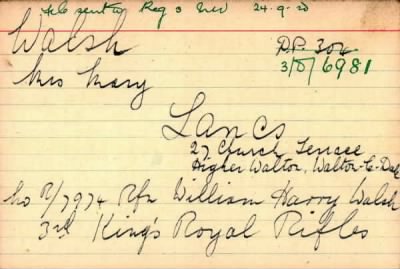 sent to Reg 3 24-9-20
Walsh
D.P. 304
3/D/6981
Mrs Mary
Lancs
27 Church Terrace
Higher Walton, Walton-le-Dale
No R/7974 Rfn William Harry Walsh
3rd King's Royal Rifles